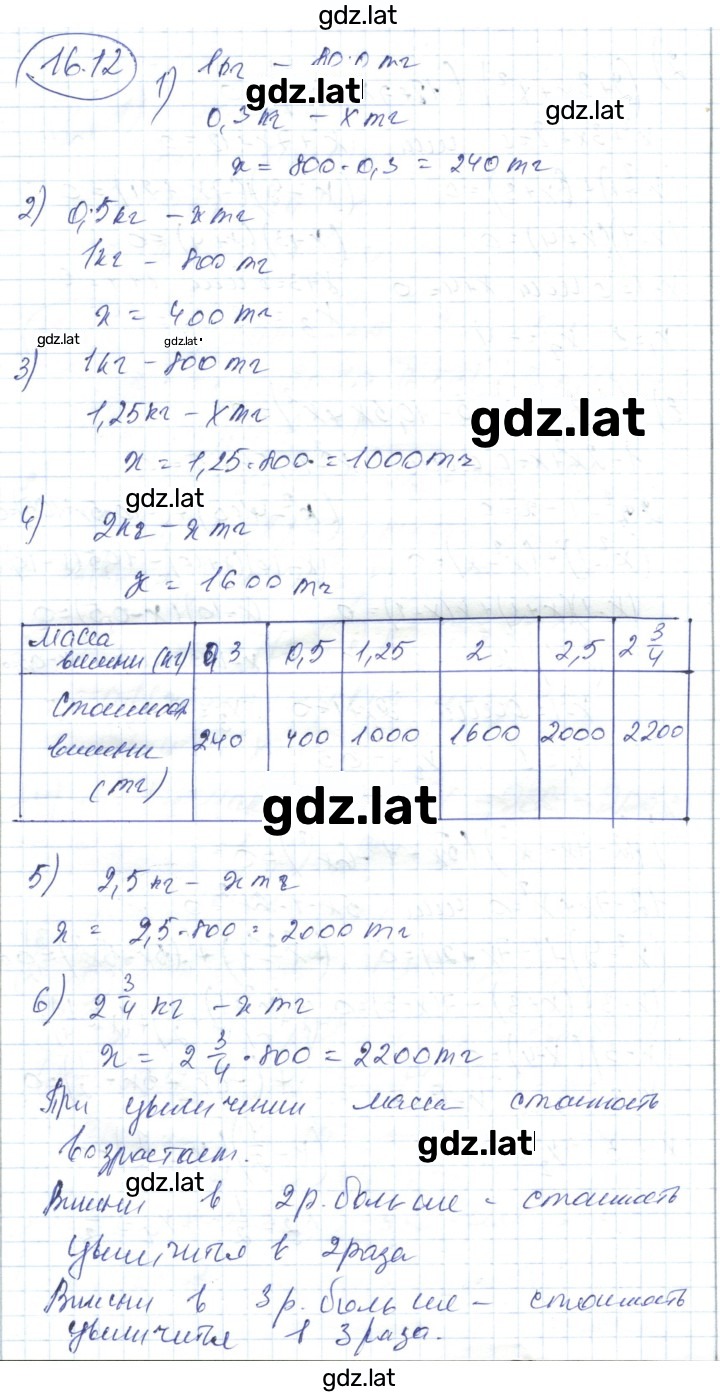 gdz.lat
16.12
1) 1кг - 800тг
gdz.lat
gdz.lat
0,3кг - х тг
х = 800·0,3 = 240тг
2) 0,5кг - х тг
1кг - 800 тг
х = 400 тг
gdz.lat gdz.lat
3) 1кг - 800 тг
1,25кг - х тг
gdz.lat
х = 1,25·800 = 1000тг
gdz.lat
4) 2кг - х тг
х = 1600 тг
Масса
вишни (кг) 0,3 0,5 1,25 2 2,5 2 3/4
Стоимость
вишни 240 400 1000 1600 2000 2200
(тг)
gdz.lat
5) 2,5кг - х тг
х = 2,5·800 = 2000 тг
6) 2 3/4 кг - х тг
х = 2 3/4 · 800 = 2200тг
При увеличении масса стоимость
возрастает.
gdz.lat
gdz.lat
Вишни в 2р. больше - стоимость
увеличится в 2раза
Вишни в 3р. больше - стоимость
увеличится в 3раза.
gdz.lat